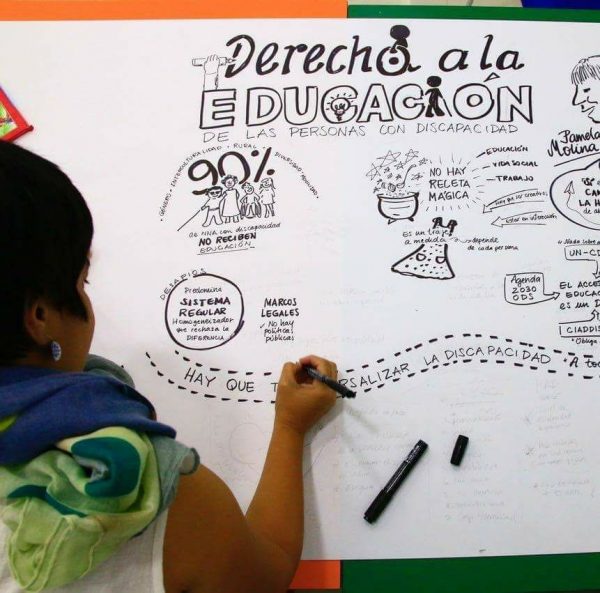 Derecho a la
EDUCACIÓN
DE LAS PERSONAS CON DISCAPACIDAD
GÉNERO · INTERCULTURALIDAD · RURAL · DIVERSIDAD
90%
de NNA con discapacidad
NO RECIBEN
EDUCACIÓN
DESAFÍOS
Predomina
SISTEMA
REGULAR
Homogeneizador
que rechaza la
DIFERENCIA
MARCOS
LEGALES
✓ No hay
políticas
públicas
NO HAY
RECETA
MÁGICA
EDUCACIÓN
VIDA SOCIAL
TRABAJO
es un traje
a medida
depende
de cada persona
Pamela
Molina
Hay que ser creativos
Estar en interacción
CAM
LA H
"Nada sobre
UN-CD
Agenda
2030
ODS
EL ACCE
EDUCAC
es un D
CIADDIS
Obliga
HAY QUE T RSALIZAR LA DISCAPACIDAD A to